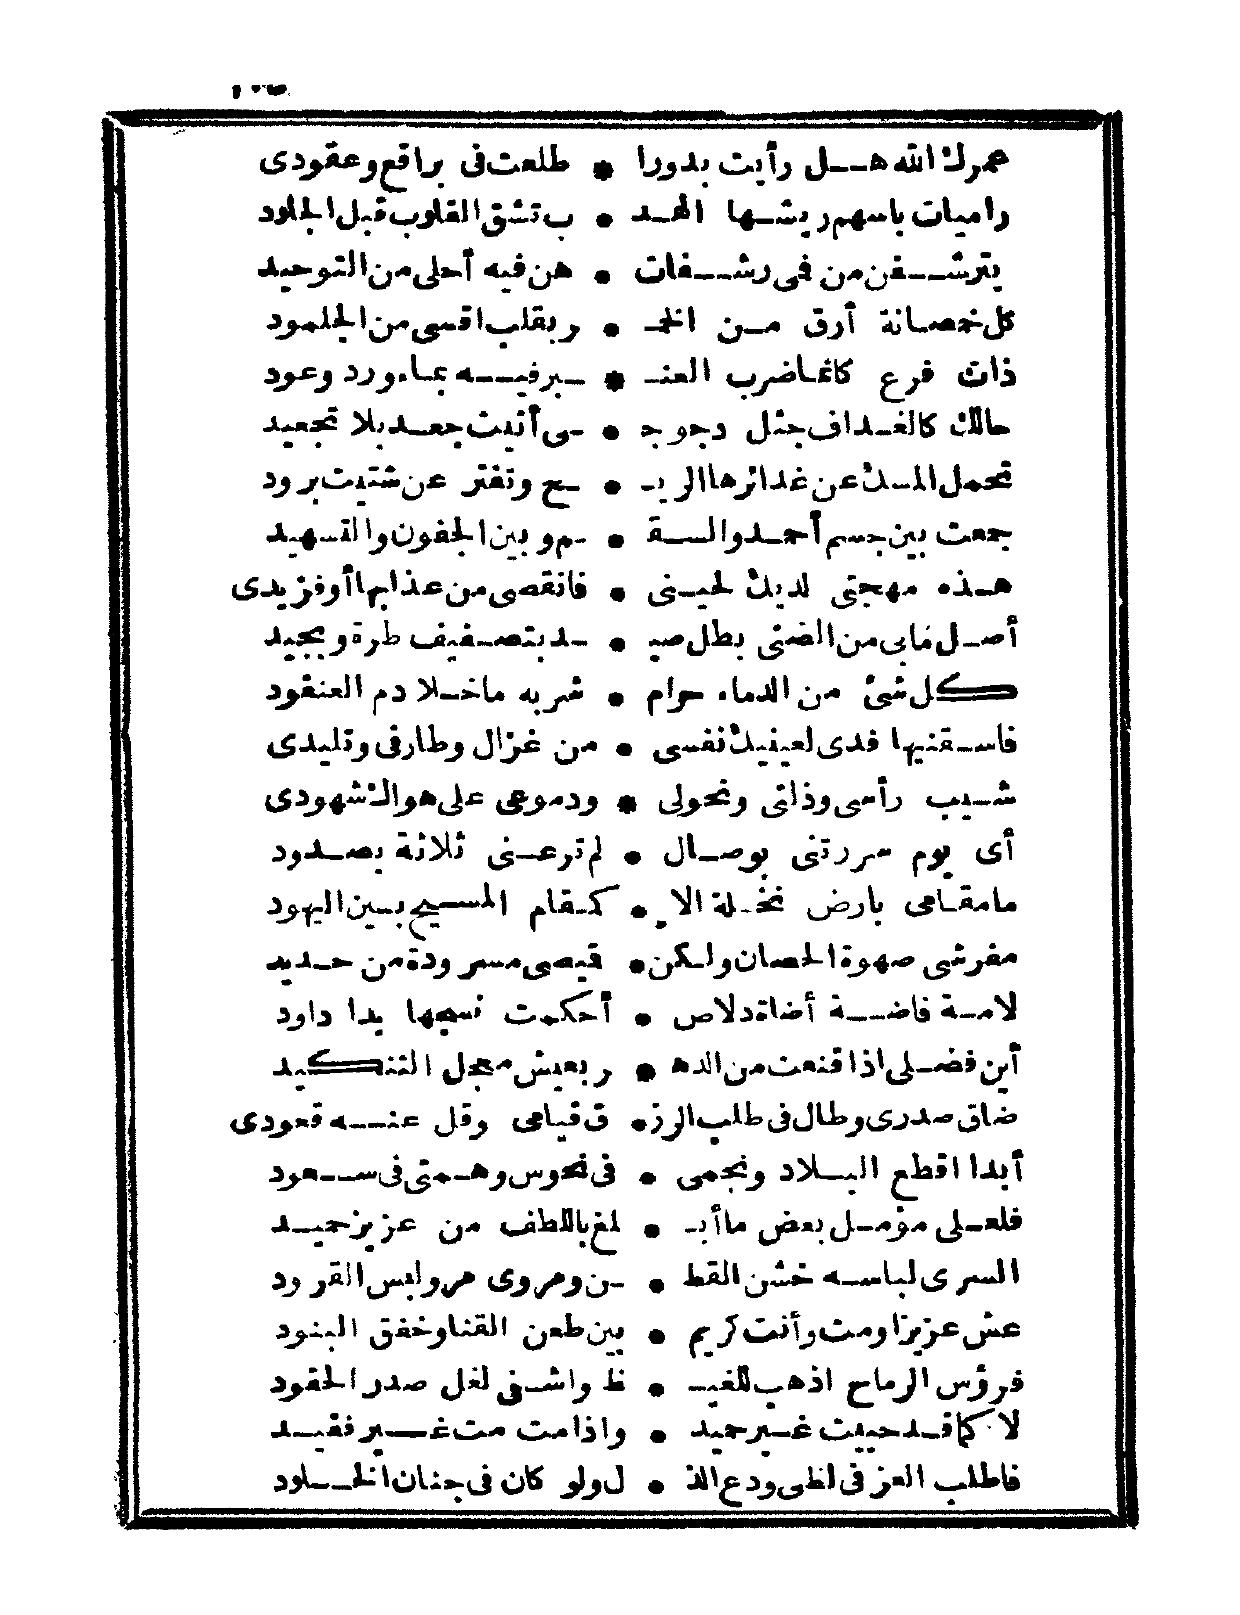 عمرك الله هـل رأيت بدورا * طلعت فى براقع وعقودى
راميات باسهم ريشـها الهـد * ب تشق القلوب قبل الجلود
يترشـفن من فمى رشـفات * هن فيه أحلى من التوحيد
كل خمصـانة أرق مـن الخمـ * ر بقلب اقسى من الجلمود
ذات فرع كانمـا ضرب العنـ * ـبر فيـه بمـاء ورد وعود
حالك كالغـداف جثل دجوجـ * ـى أثيث جعـد بلا تجعيد
تحمل المسك عن غدائرها الريـ * ـح وتفتر عن شتيت برود
جمعت بين جسم أحمـد والسـقـ * ـم وبين الجفون والتسهيد
هـذه مهجتى لديك لحيـنى * فانقصى من عذابها أو فزيدى
أصـل مابى من الضنى بطل صيـ * ـد بتصـفيف طرة وبجيد
كل شئ من الدماء حرام * شربه ماخـلا دم العنقود
فاسـقنيها فدى لعينيك نفسى * من غزال وطارفى وتليدى
شـيب رأسى وذلتى ونحولى * ودموعى على هواك شهودى
أى يوم سررتنى بوصـال * لم ترعـنى ثلاثة بصـدود
مامقـامى بارض نخـلة الا * كـمقام المسيح بـين اليهود
مفرشى صهوة الحصان ولـكن * قيصى مسرودة من حـديد
لامـة فاضـة أضاة دلاص * أحكمت نسجها يدا داود
أين فضـلى اذا قنعت من الدهـ * ر بعيش معجل التنكيد
ضاق صدرى وطال فى طلب الرز * ق قيامى وقل عنـه قعودى
أبدا اقطع البـلاد ونجمى * فى نحوس وهـمتى فى سـعود
فلعـلى مؤمـل بعض ماأبـ * لغ باللطف من عزيز حميـد
لسرى لباسـه خشن القطـ * ـن ومروى مرو لبس القرود
عش عزيزا ومت وأنت كريم * بين طعن القنا وخفق البنود
فرؤس الرماح اذهب للغيـ * ظ واشـفى لغل صدر الحقود
لا كما قـد حييت غـير حميد * واذا مت مت غـير فقيـد
فاطلب العز فى لظى ودع الذ * ل ولو كان فى جنان الخـلود